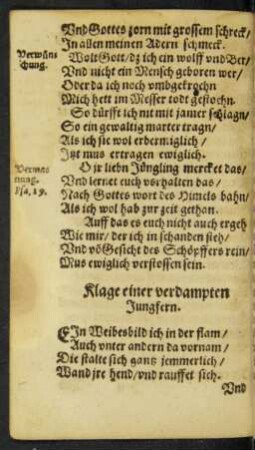 Vnd Gottes zorn mit grossem schreck/
In allen meinen Adern schmeck.
Verwüns
chung.
Wolt Gott/dz ich ein wolff vnd Ber/
Vnd nicht ein Mensch geboren wer/
Oder da ich noch vmbgekrochn
Mich hett im Messer todt gestochn.
So dürfft ich nit mit jamer schlagn/
So ein gewaltig marter tragn/
Als ich sie wol erbermiglich/
Itzt mus ertragen ewiglich.
Vermas
nung.
Psa. 19.
O jr liebn Jüngling mercket das/
Vnd lernet euch vorhalten das/
Nach Gottes wort des Himels bahn/
Als ich wol hab zur zeit gethan.
Auff das es euch nicht auch ergeh
Wie mir/ der ich in schanden steh/
Vnd vō Gesicht des Schöpffers rein/
Mus ewiglich verstossen sein.
Klage einer verdampten
Jungfern.
EIn Weibesbild ich in der flam/
Auch vnter andern da vornam/
Die stalte sich gantz jemmerlich/
Wand jre hend/vnd rauffet sich.
Vnd